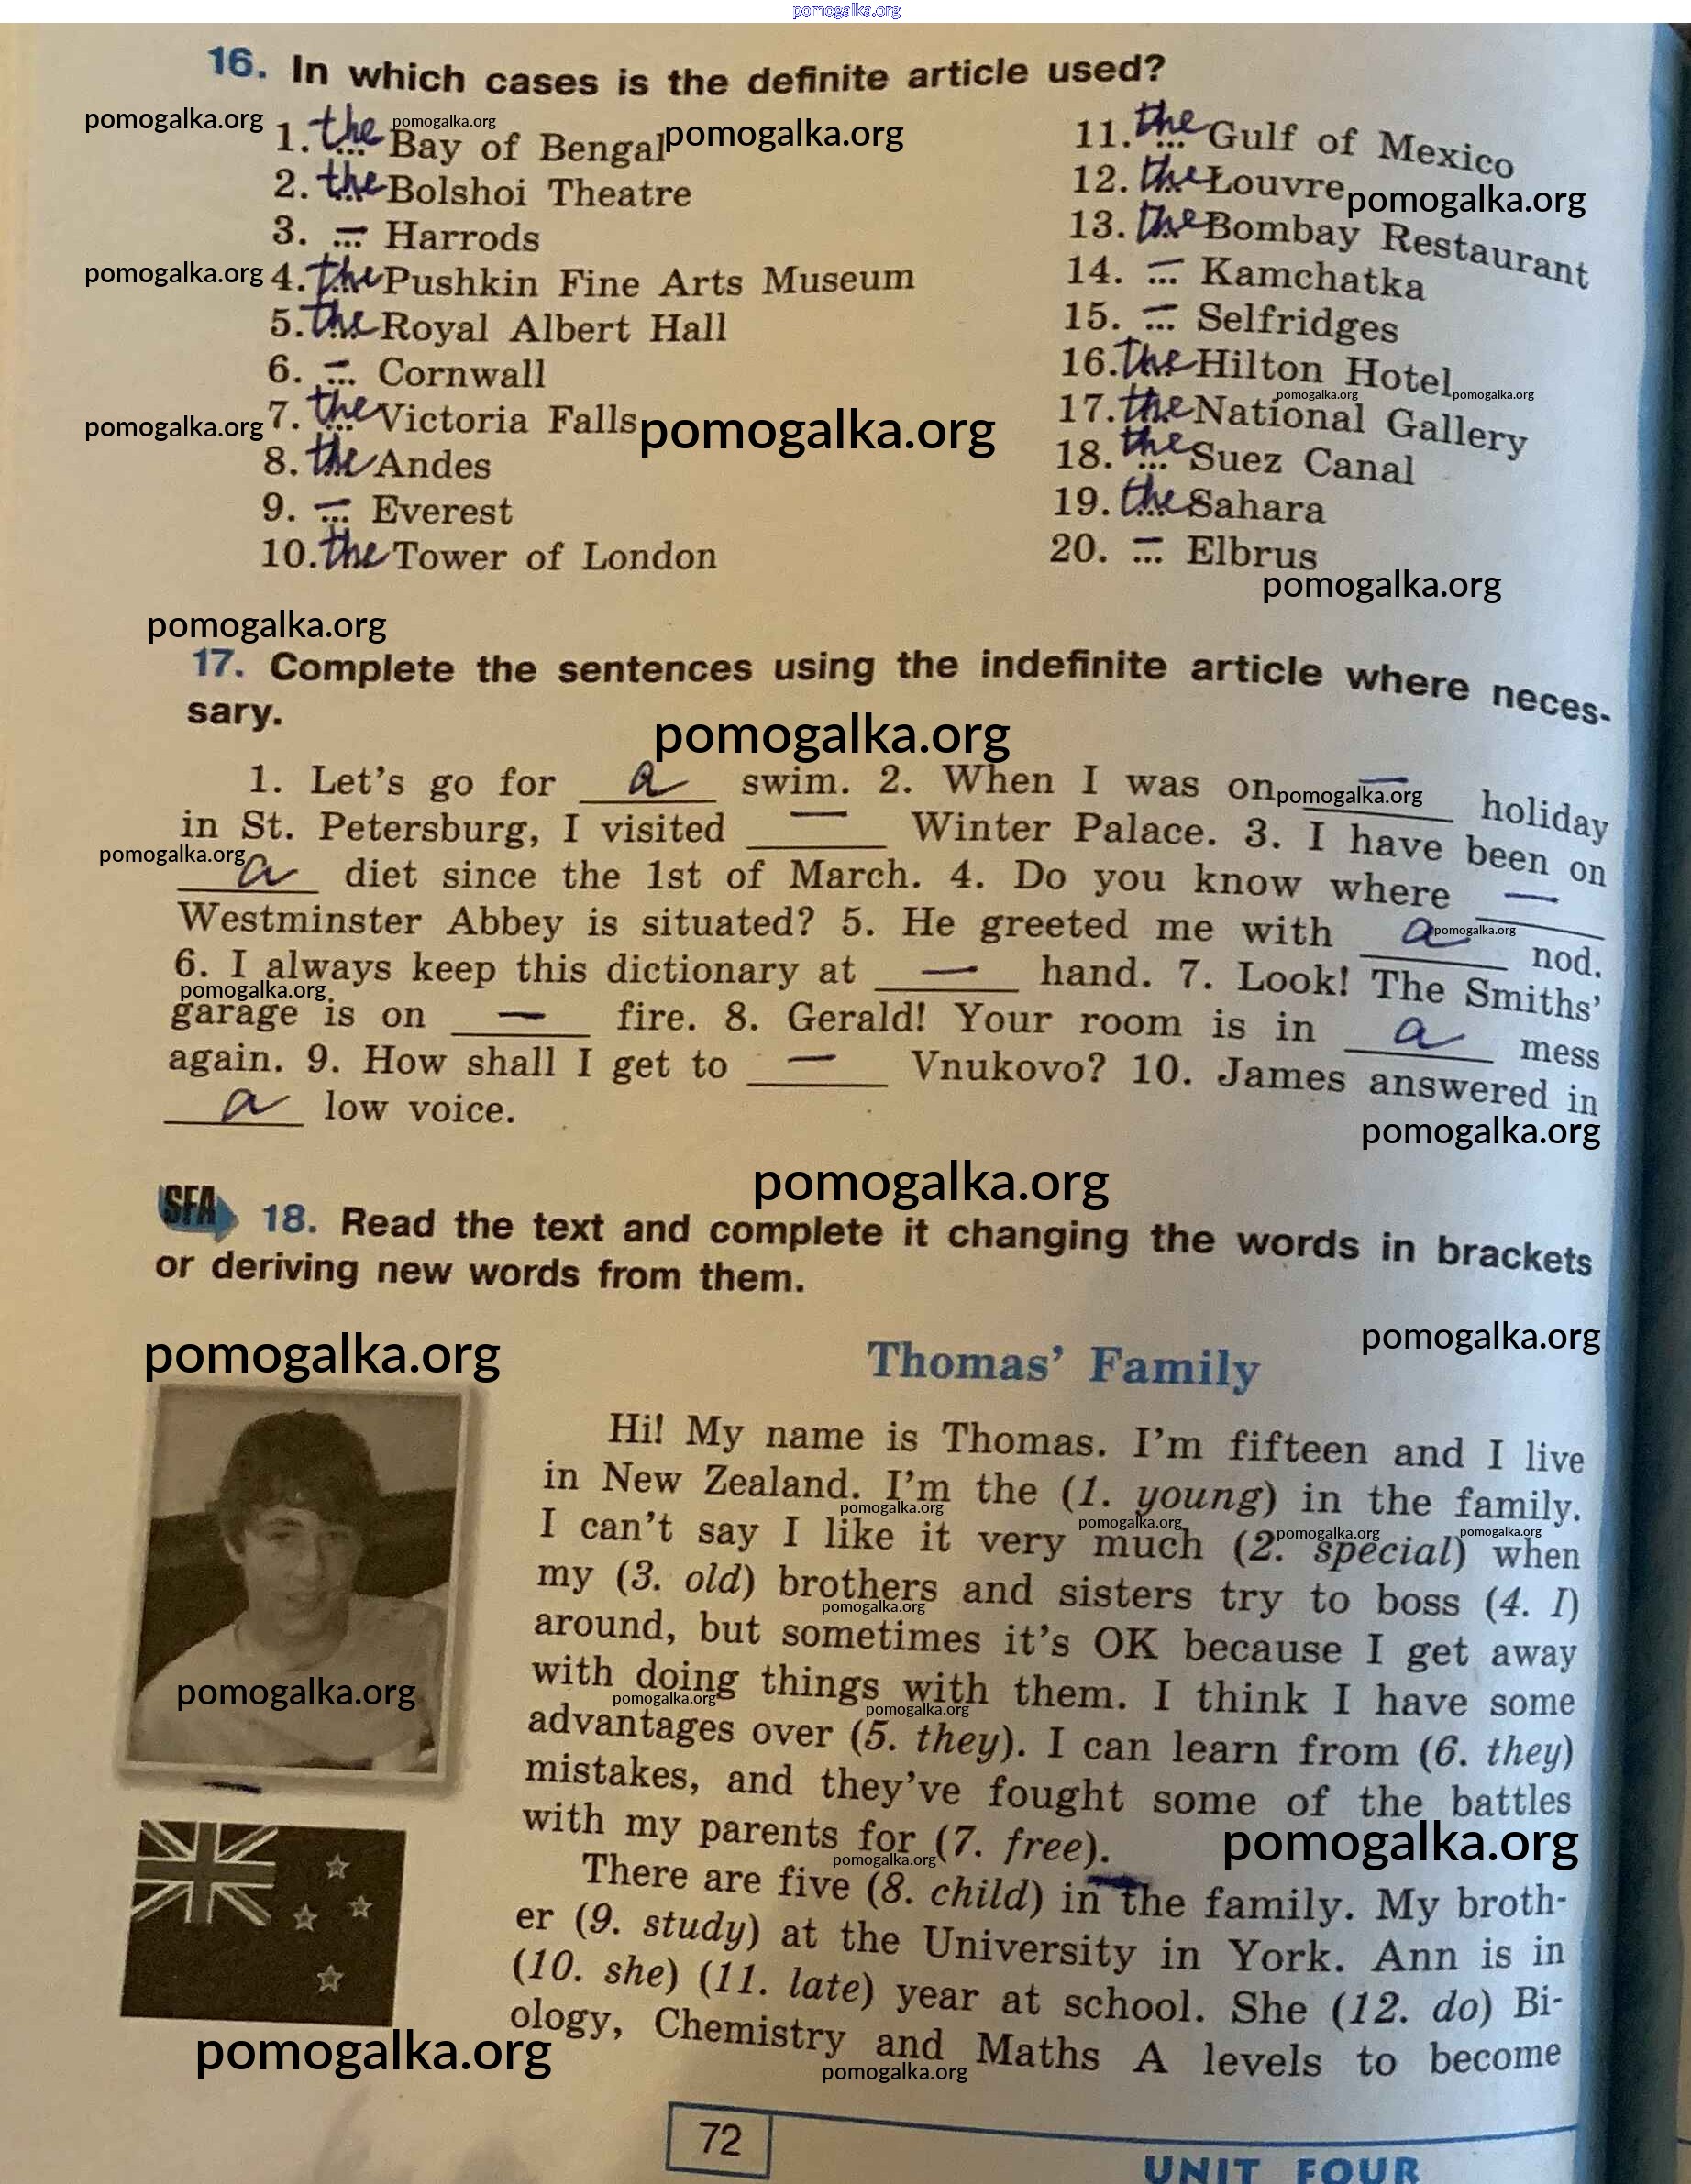 pomogalka.org
16. In which cases is the definite article used?
pomogalka.org 1. the Bay of Bengal pomogalka.org pomogalka.org
2. the Bolshoi Theatre
3. –... Harrods
pomogalka.org 4. the Pushkin Fine Arts Museum
5. the Royal Albert Hall
6. –... Cornwall
pomogalka.org 7. the Victoria Falls pomogalka.org
8. the Andes
9. –... Everest
10. the Tower of London
11. the Gulf of Mexico
12. the Louvre pomogalka.org
13. the Bombay Restaurant
14. –... Kamchatka
15. –... Selfridges
16. the Hilton Hotel pomogalka.org pomogalka.org
17. the National Gallery
18. the Suez Canal
19. the Sahara
20. –... Elbrus
pomogalka.org
pomogalka.org
17. Complete the sentences using the indefinite article where neces-
sary.
pomogalka.org
1. Let's go for a swim. 2. When I was on pomogalka.org — holiday
in St. Petersburg, I visited — Winter Palace. 3. I have been on
pomogalka.org
a diet since the 1st of March. 4. Do you know where —
Westminster Abbey is situated? 5. He greeted me with a pomogalka.org nod.
6. I always keep this dictionary at — hand. 7. Look! The Smiths'
pomogalka.org
garage is on — fire. 8. Gerald! Your room is in a mess
again. 9. How shall I get to — Vnukovo? 10. James answered in
a low voice.
pomogalka.org
pomogalka.org
SFA 18. Read the text and complete it changing the words in brackets
or deriving new words from them.
pomogalka.org
pomogalka.org
Thomas' Family
Hi! My name is Thomas. I'm fifteen and I live
in New Zealand. I'm the (1. young) in the family.
pomogalka.org pomogalka.org pomogalka.org pomogalka.org
I can't say I like it very much (2. special) when
my (3. old) brothers and sisters try to boss (4. I)
pomogalka.org
around, but sometimes it's OK because I get away
with doing things with them. I think I have some
pomogalka.org pomogalka.org pomogalka.org
advantages over (5. they). I can learn from (6. they)
mistakes, and they've fought some of the battles
with my parents for (7. free). pomogalka.org
pomogalka.org
There are five (8. child) in the family. My broth-
er (9. study) at the University in York. Ann is in
(10. she) (11. late) year at school. She (12. do) Bi-
ology, Chemistry and Maths A levels to become
pomogalka.org
pomogalka.org
72
UNIT FOUR